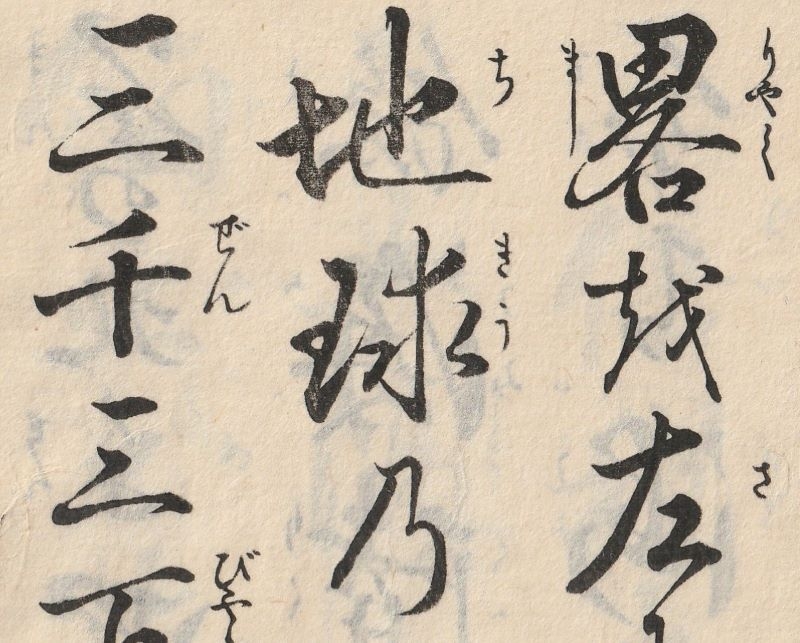 りやく
さ
畧越左
まし
ちきう
地球乃
ぜん
びや
三千三百